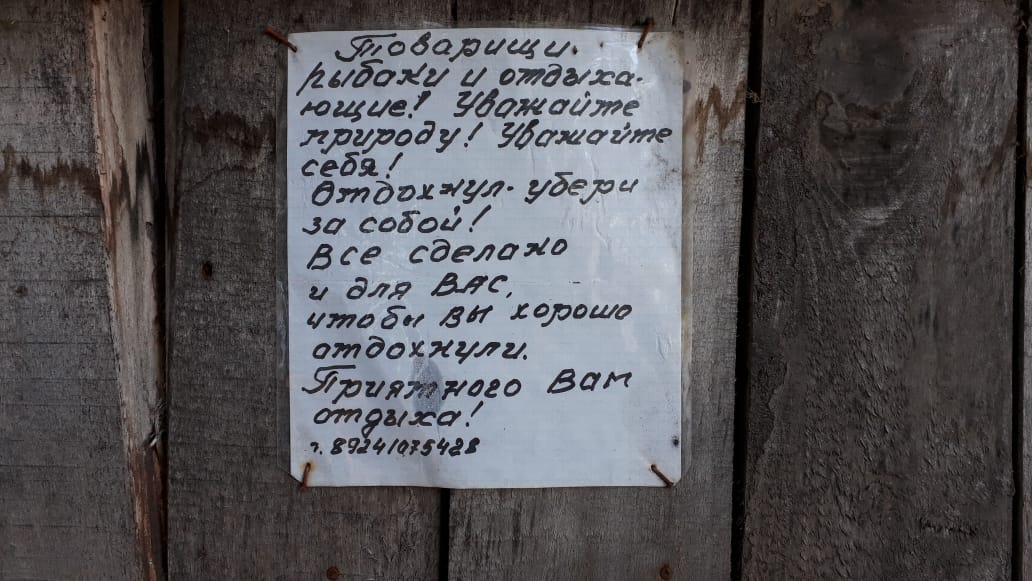 Товарищи
рыбаки и отдыха-
ющие! Уважайте
природу! Уважайте
себя!
Отдохнул - убери
за собой!
Все сделано
и для ВАС,
чтобы вы хорошо
отдохнули.
Приятного Вам
отдыха!
т. 89241075428